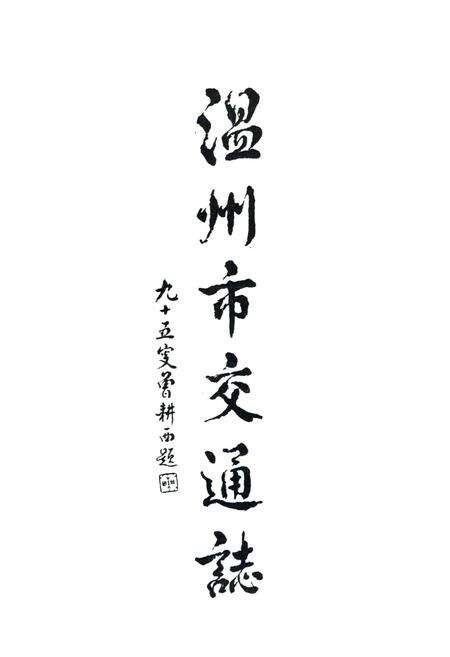 溫州市交通誌
九十五叟曾耕西題